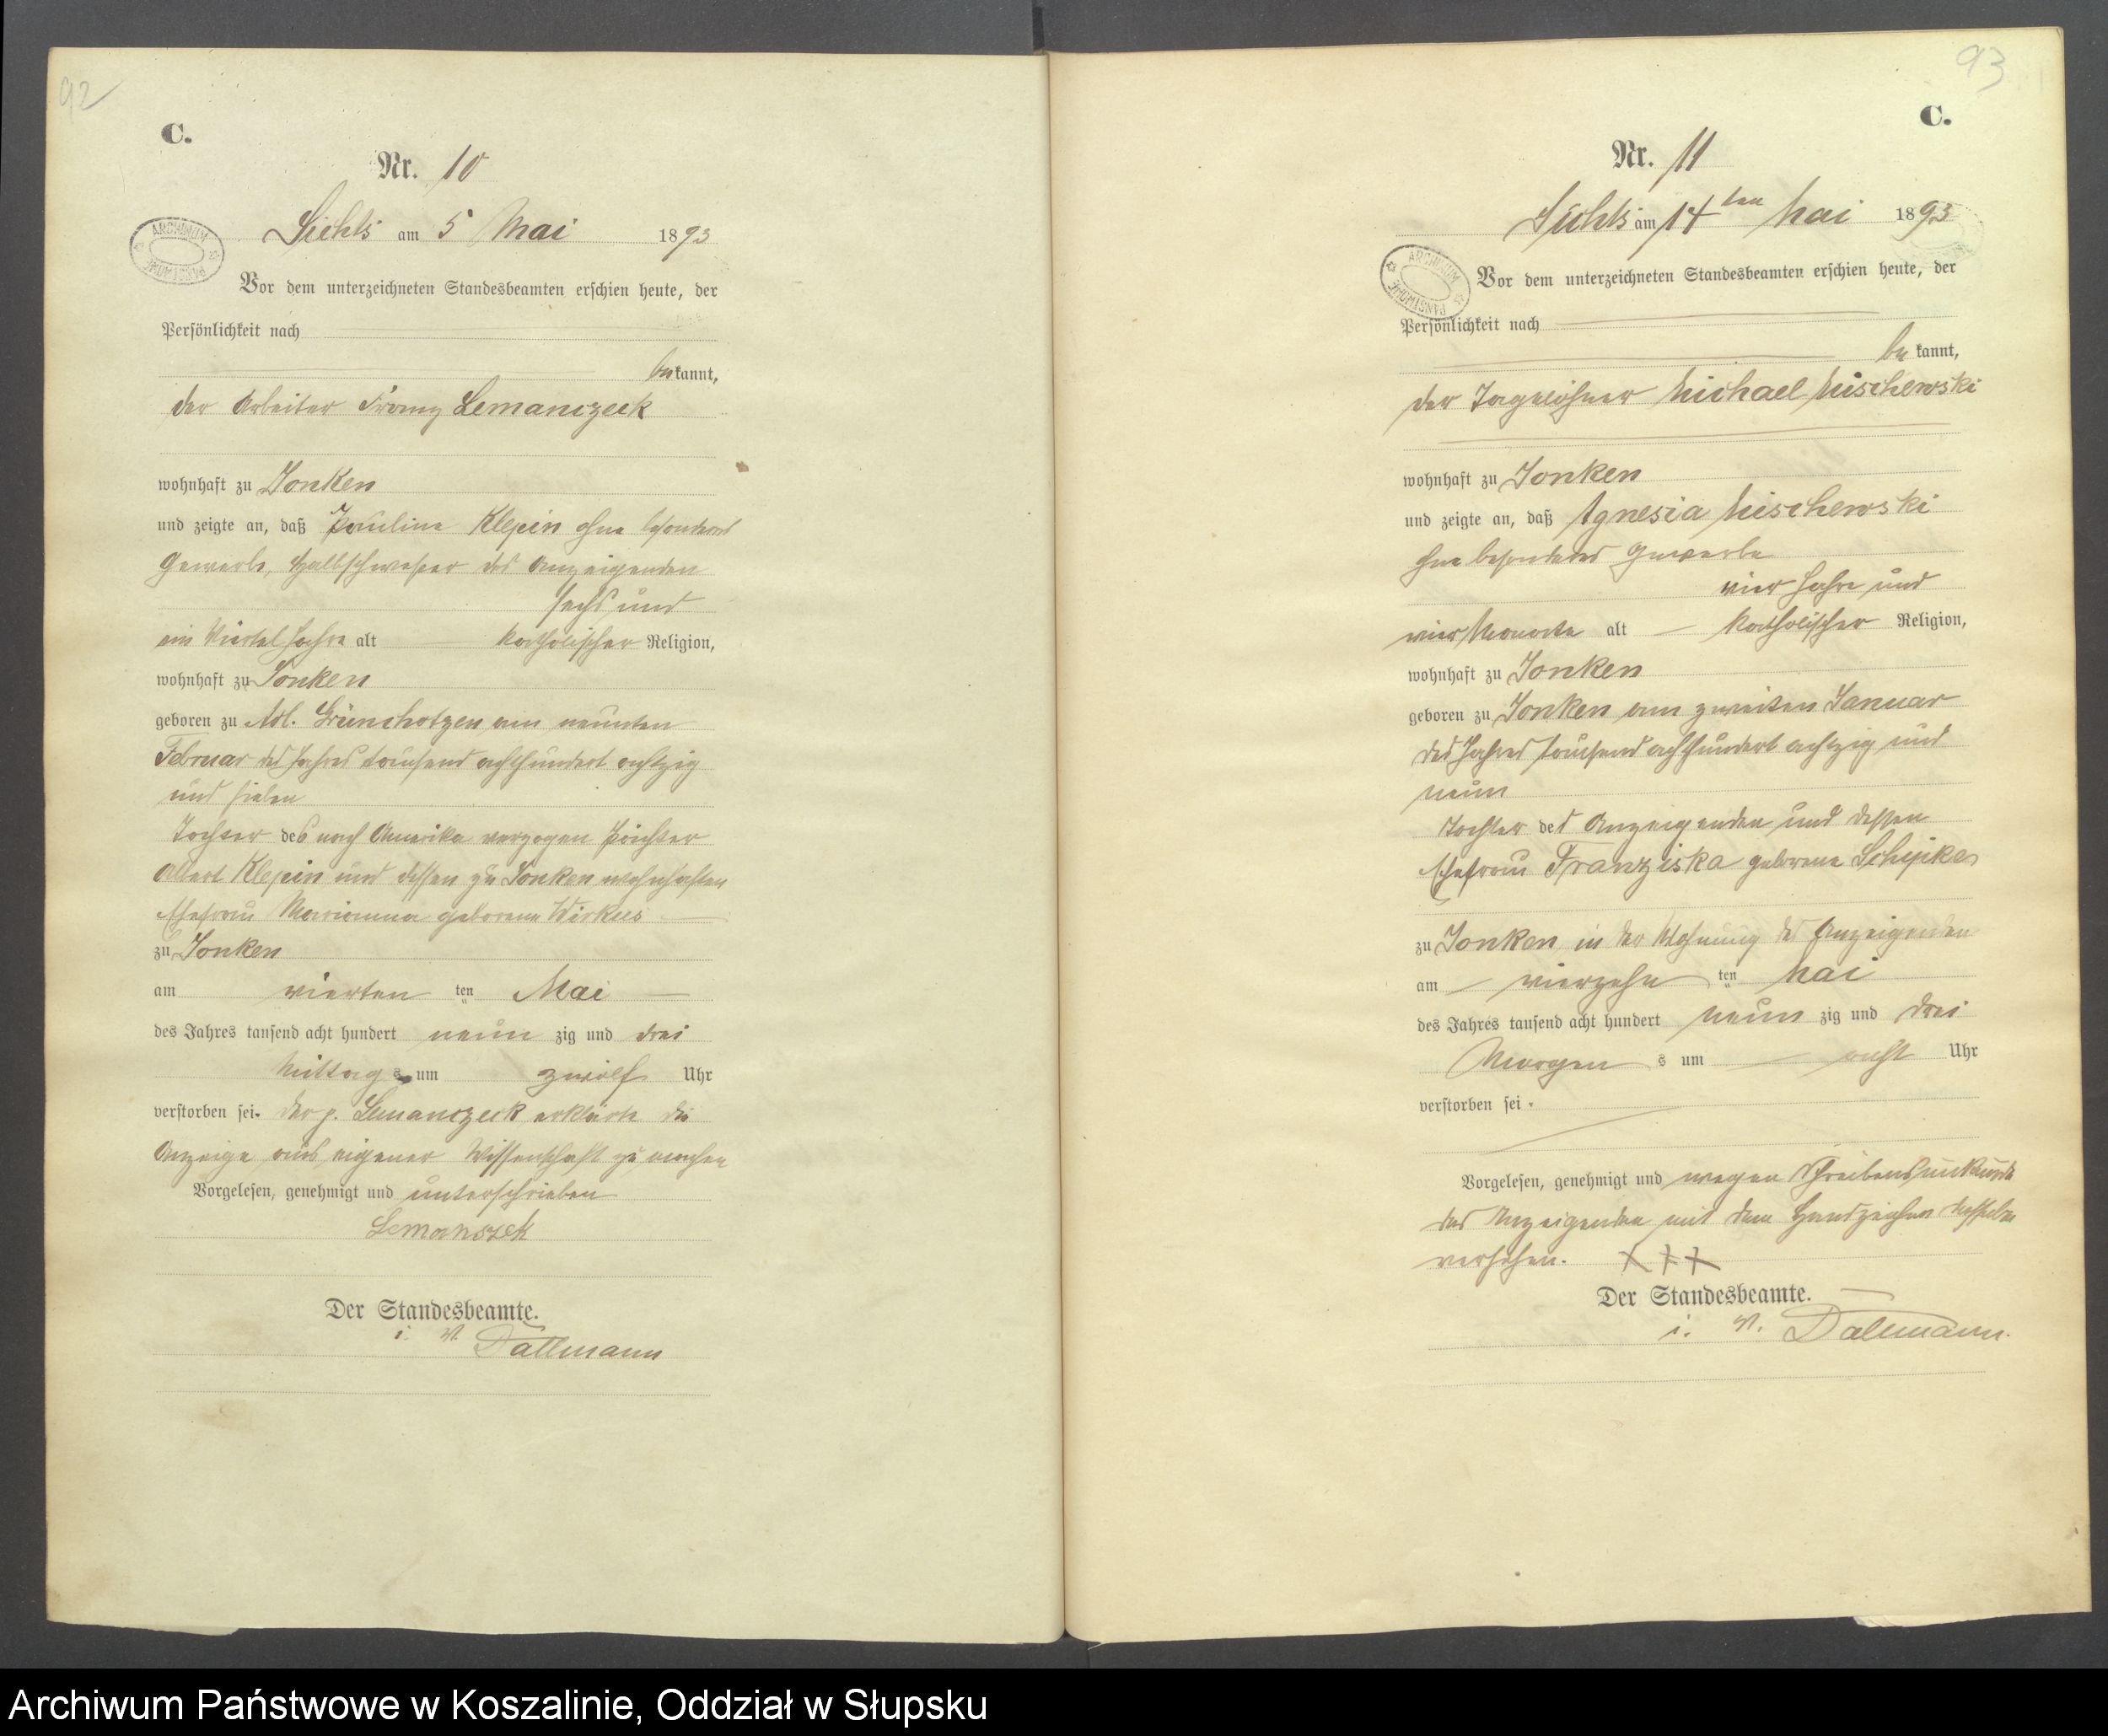 92
C.
Nr. 10
Sichts am 5 Mai 1893
ARCHIWUM PAŃSTWOWE
Vor dem unterzeichneten Standesbeamten erschien heute, der
Persönlichkeit nach
bekannt,
der Arbeiter Franz Lemanczeck
wohnhaft zu Jonken
und zeigte an, daß Pauline Klepin ohne besonderes
Gewerbe, Halbschwester des Anzeigenden
sechs und
ein Viertel Jahre alt katholischer Religion,
wohnhaft zu Jonken
geboren zu Adl. Grünchotzen am neunten
Februar des Jahres tausend achthundert achtzig
und sieben
Tochter des nach Amerika verzogen Pächter
Albert Klepin und dessen zu Jonken wohnhaften
Ehefrau Marianna geborene Wirkus
zu Jonken
am vierten ten Mai
des Jahres tausend acht hundert neun zig und drei
Mittags um zwölf Uhr
verstorben sei. Der p. Lemanczeck erklärte die
Anzeige aus eigener Wissenschaft zu machen
Vorgelesen, genehmigt und unterschrieben
Lemanszek
Der Standesbeamte.
i. V. Dallmann
93
C.
Nr. 11
Sichts am 14ten Mai 1893
ARCHIWUM PAŃSTWOWE
Vor dem unterzeichneten Standesbeamten erschien heute, der
Persönlichkeit nach
bekannt,
der Tagelöhner Michael Mischewski
wohnhaft zu Jonken
und zeigte an, daß Agnesia Mischewski
ohne besonderes Gewerbe
vier Jahre und
vier Monate alt katholischer Religion,
wohnhaft zu Jonken
geboren zu Jonken am zweiten Januar
des Jahres tausend achthundert achtzig und
neun
Tochter des Anzeigenden und dessen
Ehefrau Franziska geborene Schipke
zu Jonken in der Wohnung des Anzeigenden
am vierzehn ten Mai
des Jahres tausend acht hundert neun zig und drei
Morgens um acht Uhr
verstorben sei.
Vorgelesen, genehmigt und wegen Schreibensunkunde
des Anzeigenden mit dem Handzeichen desselben
versehen. XXX
Der Standesbeamte.
i. V. Dallmann.
Archiwum Państwowe w Koszalinie, Oddział w Słupsku